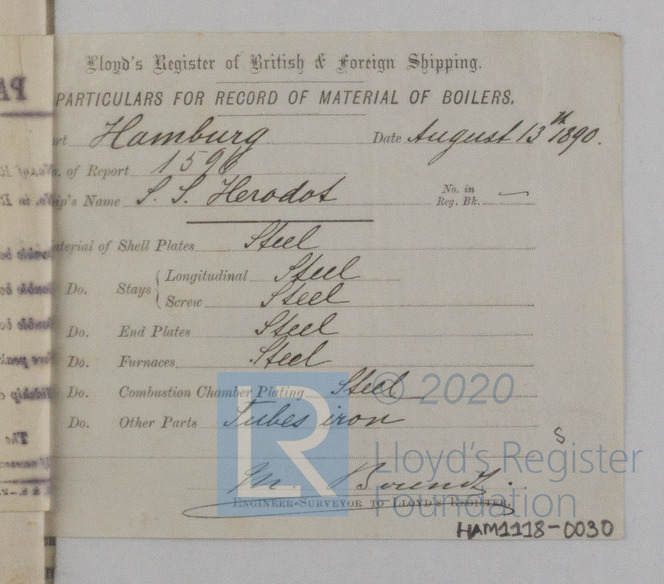 Lloyd's Register of British & Foreign Shipping.
PARTICULARS FOR RECORD OF MATERIAL OF BOILERS.
ort Hamburg Date August 13th 1890.
o. of Report 1596
ip's Name S. S. Herodot No. in Reg. Bk. —
aterial of Shell Plates Steel
Do. Stays { Longitudinal Steel
Screw Steel
Do. End Plates Steel
Do. Furnaces Steel
Do. Combustion Chamber Plating Steel
Do. Other Parts Tubes iron
ENGINEER-SURVEYOR TO LLOYD'S REGISTER
HAM1118-0030
LR © 2020
Lloyd's Register
Foundation